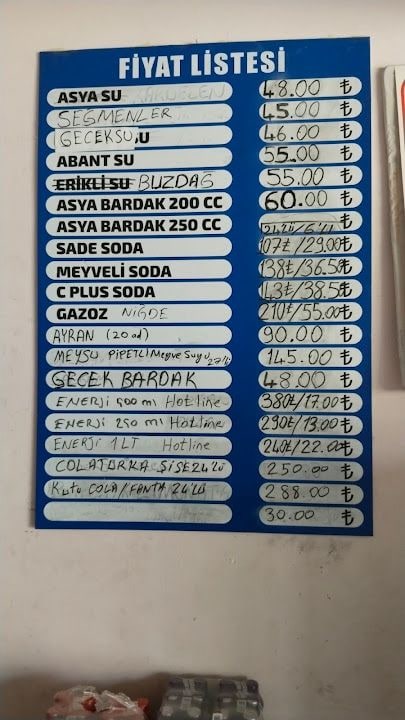 FİYAT LİSTESİ
ASYA SU 48.00 ₺
SEĞMENLER 45.00 ₺
GECEKSU SU 46.00 ₺
ABANT SU 55.00 ₺
ERİKLİ SU BUZDAĞ 55.00 ₺
ASYA BARDAK 200 CC 60.00 ₺
ASYA BARDAK 250 CC ₺
SADE SODA 107₺/29.00₺
MEYVELİ SODA 138₺/36.50₺
C PLUS SODA 143₺/38.50₺
GAZOZ NİĞDE 210₺/55.00₺
AYRAN (20 ad) 90.00 ₺
MEYSU PİPETLİ Meyve Suyu 27'li 145.00 ₺
GECEK BARDAK 48.00 ₺
ENERJİ 500 ml Hotline 380₺/17.00₺
ENERJİ 250 ml Hotline 290₺/13.00₺
ENERJİ 1 LT Hotline 240₺/22.00₺
COLATURKA ŞİSE 24'lü 250.00 ₺
Kutu COLA/FANTA 24'LÜ 288.00 ₺
30.00 ₺